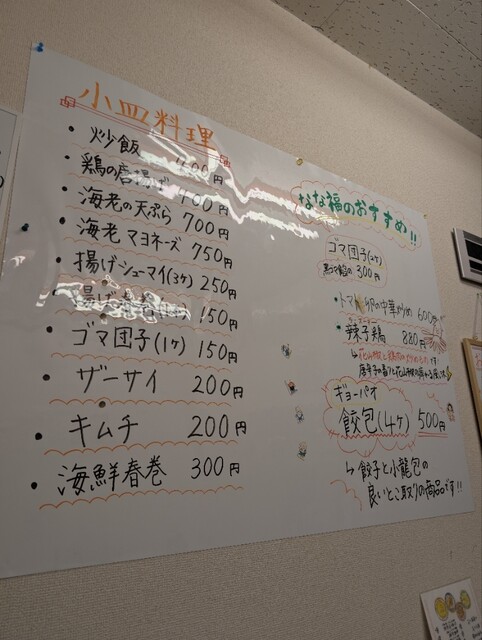 小皿料理
・炒飯 400円
・鶏の唐揚げ 400円
・海老の天ぷら 700円
・海老マヨネーズ 750円
・揚げシューマイ(3ヶ) 250円
150円
・ゴマ団子(1ヶ) 150円
・ザーサイ 200円
・キムチ 200円
・海鮮春巻 300円
なな福のおすすめ!!
ゴマ団子(2ヶ)
300円
・トマトと卵の中華炒め 600円
・辣子鶏 880円
ギョーパオ
餃包(4ヶ) 500円
↳餃子と小龍包の
良いとこ取りの商品です!!